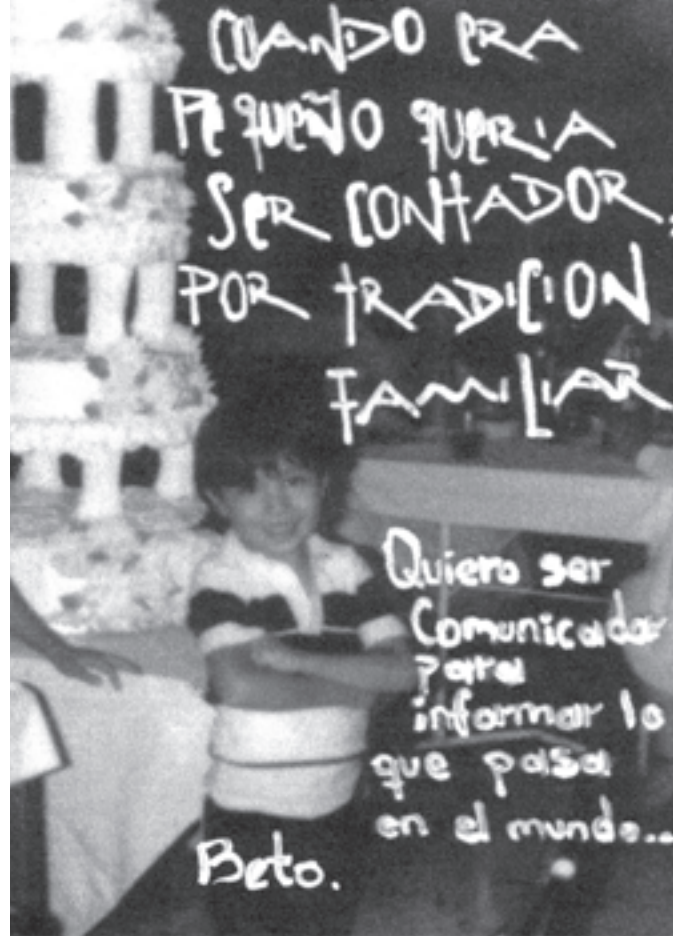 CUANDO ERA
PEQUEÑO QUERIA
SER CONTADOR.
POR TRADICION
FAMILIAR
Quiero ser
Comunicador
para
informar lo
que pasa
en el mundo...
Beto.